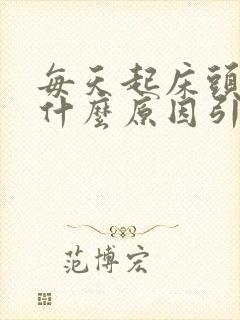 每天起床頭
什麼原因引
范博宏